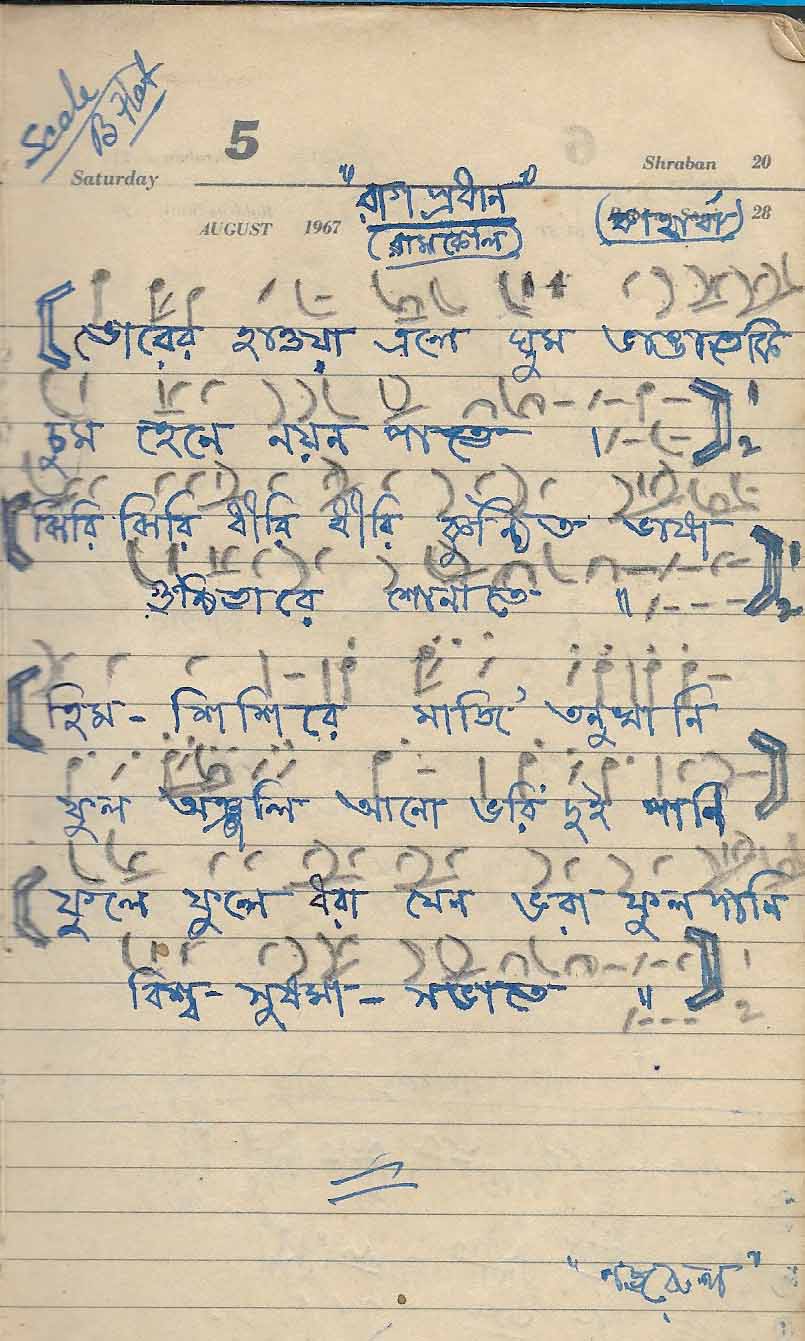 Scale
B Flat
5
Saturday
Shraban 20
"রাগ প্রধান"
28
AUGUST 1967
(রামকেলি)
(কাহার্বা)
ভোরের হাওয়া এলে ঘুম ভাঙাতে কি
চুম হেনে নয়ন পাতে
ঝিরি ঝিরি ধীরি ধীরি কুন্ঠিত ভাষা
গুন্ঠিতারে শোনাতে
হিম-শিশিরে মাজি' তনুখানি
ফুল অঞ্জলি আনো ভরি' দুই পানি
ফুলে ফুলে ধরা যেন ভরা ফুলদানি
বিশ্ব-সুষমা-সভাতে
"নজরুল"